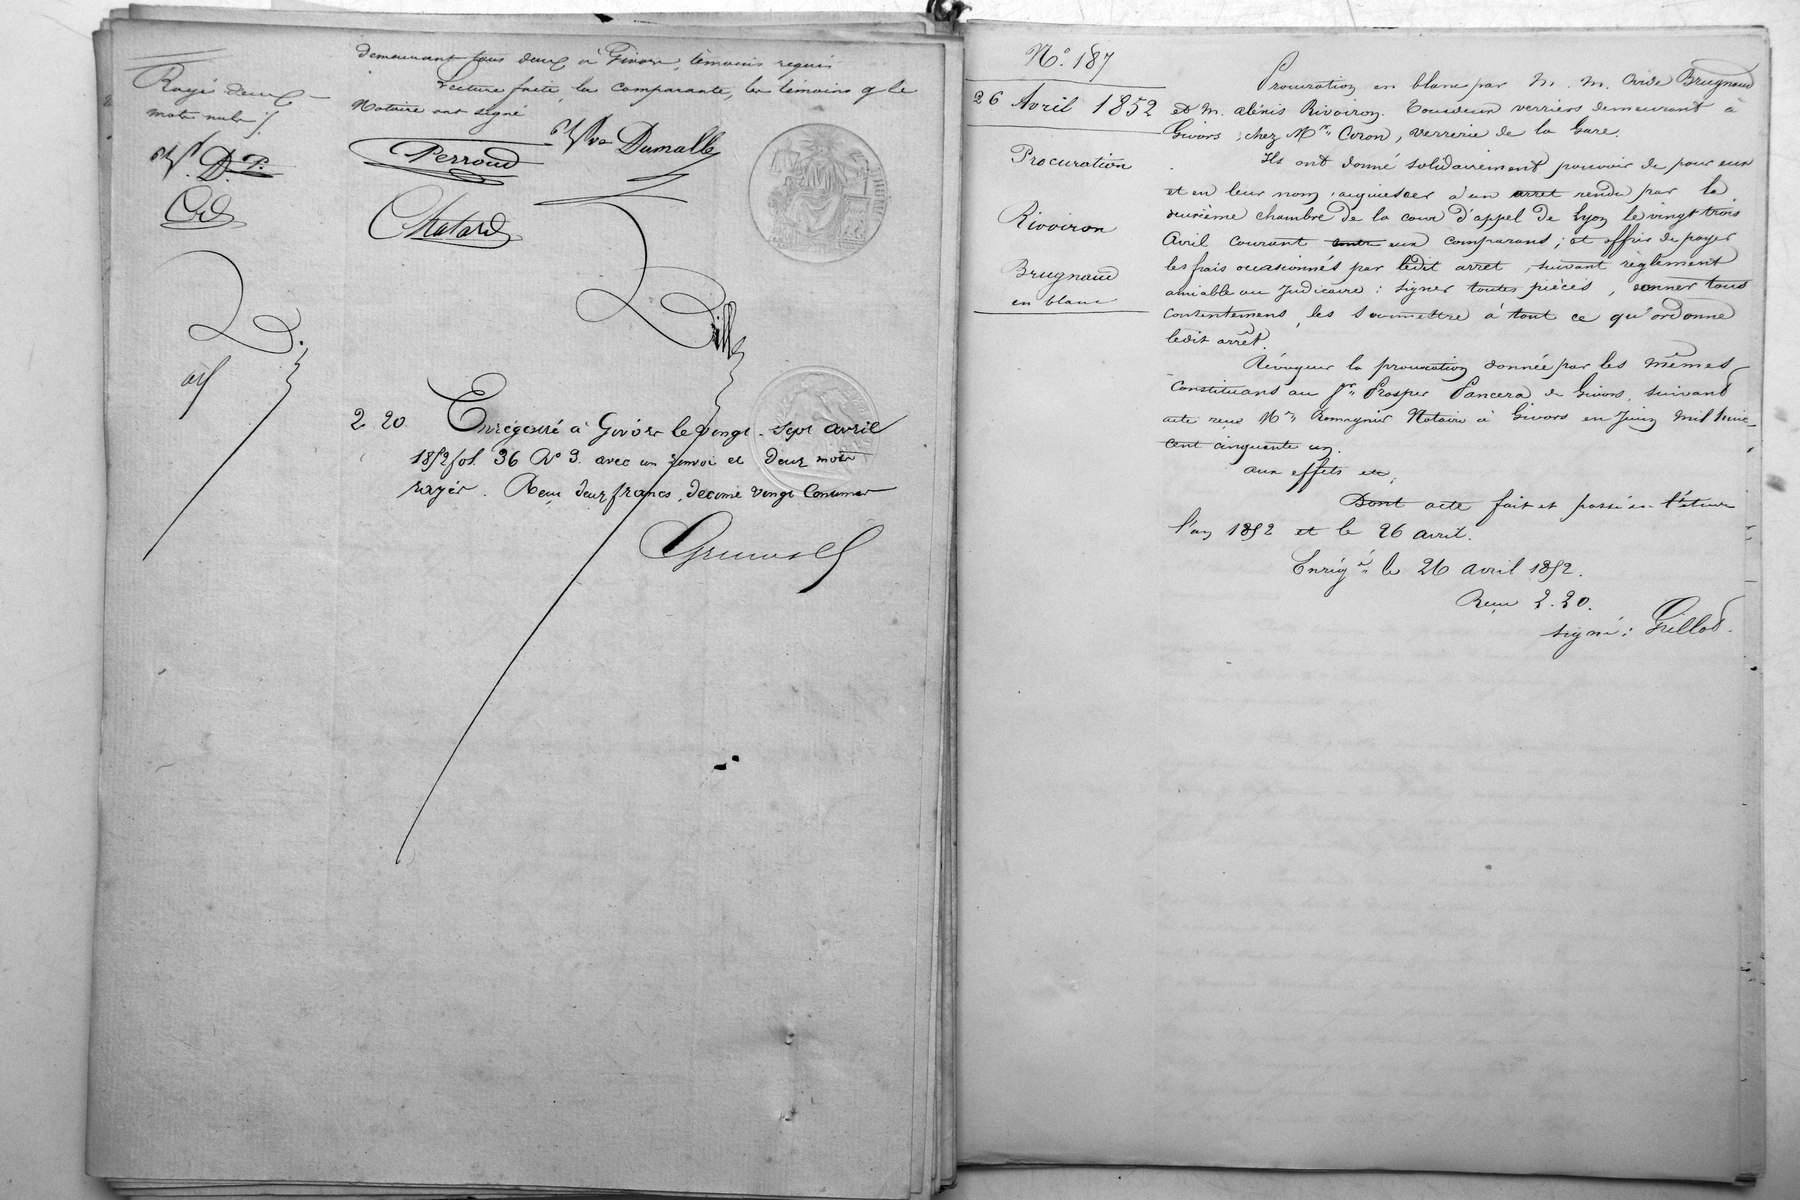 demeurant tous deux à Givors, témoins requis
Lecture faite, la comparante, les témoins & le
Notaire ont signé
Rayé deux
mots nuls ./.
Vve Dumalle
Perroud
Chatard
Vve D. P.
2 20.
Enregistré à Givors le vingt-sept avril
1852 fol. 36 No 3. avec un renvoi et deux mots
rayés. Reçu deux francs, décime vingt centimes
No. 187
26 Avril 1852
Procuration
Rivoiron
Brugnaud
en blanc
Procuration en blanc par M. M. Brugnaud
et M. Alexis Rivoiron. Tous deux verriers demeurant à
Givors, chez Mr. Coron, verrerie de la Gare.
Ils ont donné solidairement pouvoir de pour eux
et en leur nom, acquiescer à un arret rendu par la
deuxième chambre de la cour d'appel de Lyon le vingt trois
Avril courant contre eux comparans; et offrir de payer
les frais occasionnés par ledit arret, suivant règlement
amiable ou Judicaire: signer toutes pièces, donner tous
consentemens, les soumettre à tout ce qu'ordonne
ledit arrêt.
Révoquer la procuration donnée par les mêmes
constituans au Sr. Prosper Pancera de Givors, suivant
acte reçu Me. Romagnier Notaire à Givors en Juin mil huit
cent cinquante un.
aux effets etc,
Dont acte fait et passé en l'étude
l'an 1852 et le 26 avril.
Enrigé. le 26 avril 1852.
Reçu 2.20.
signé: Grillot.